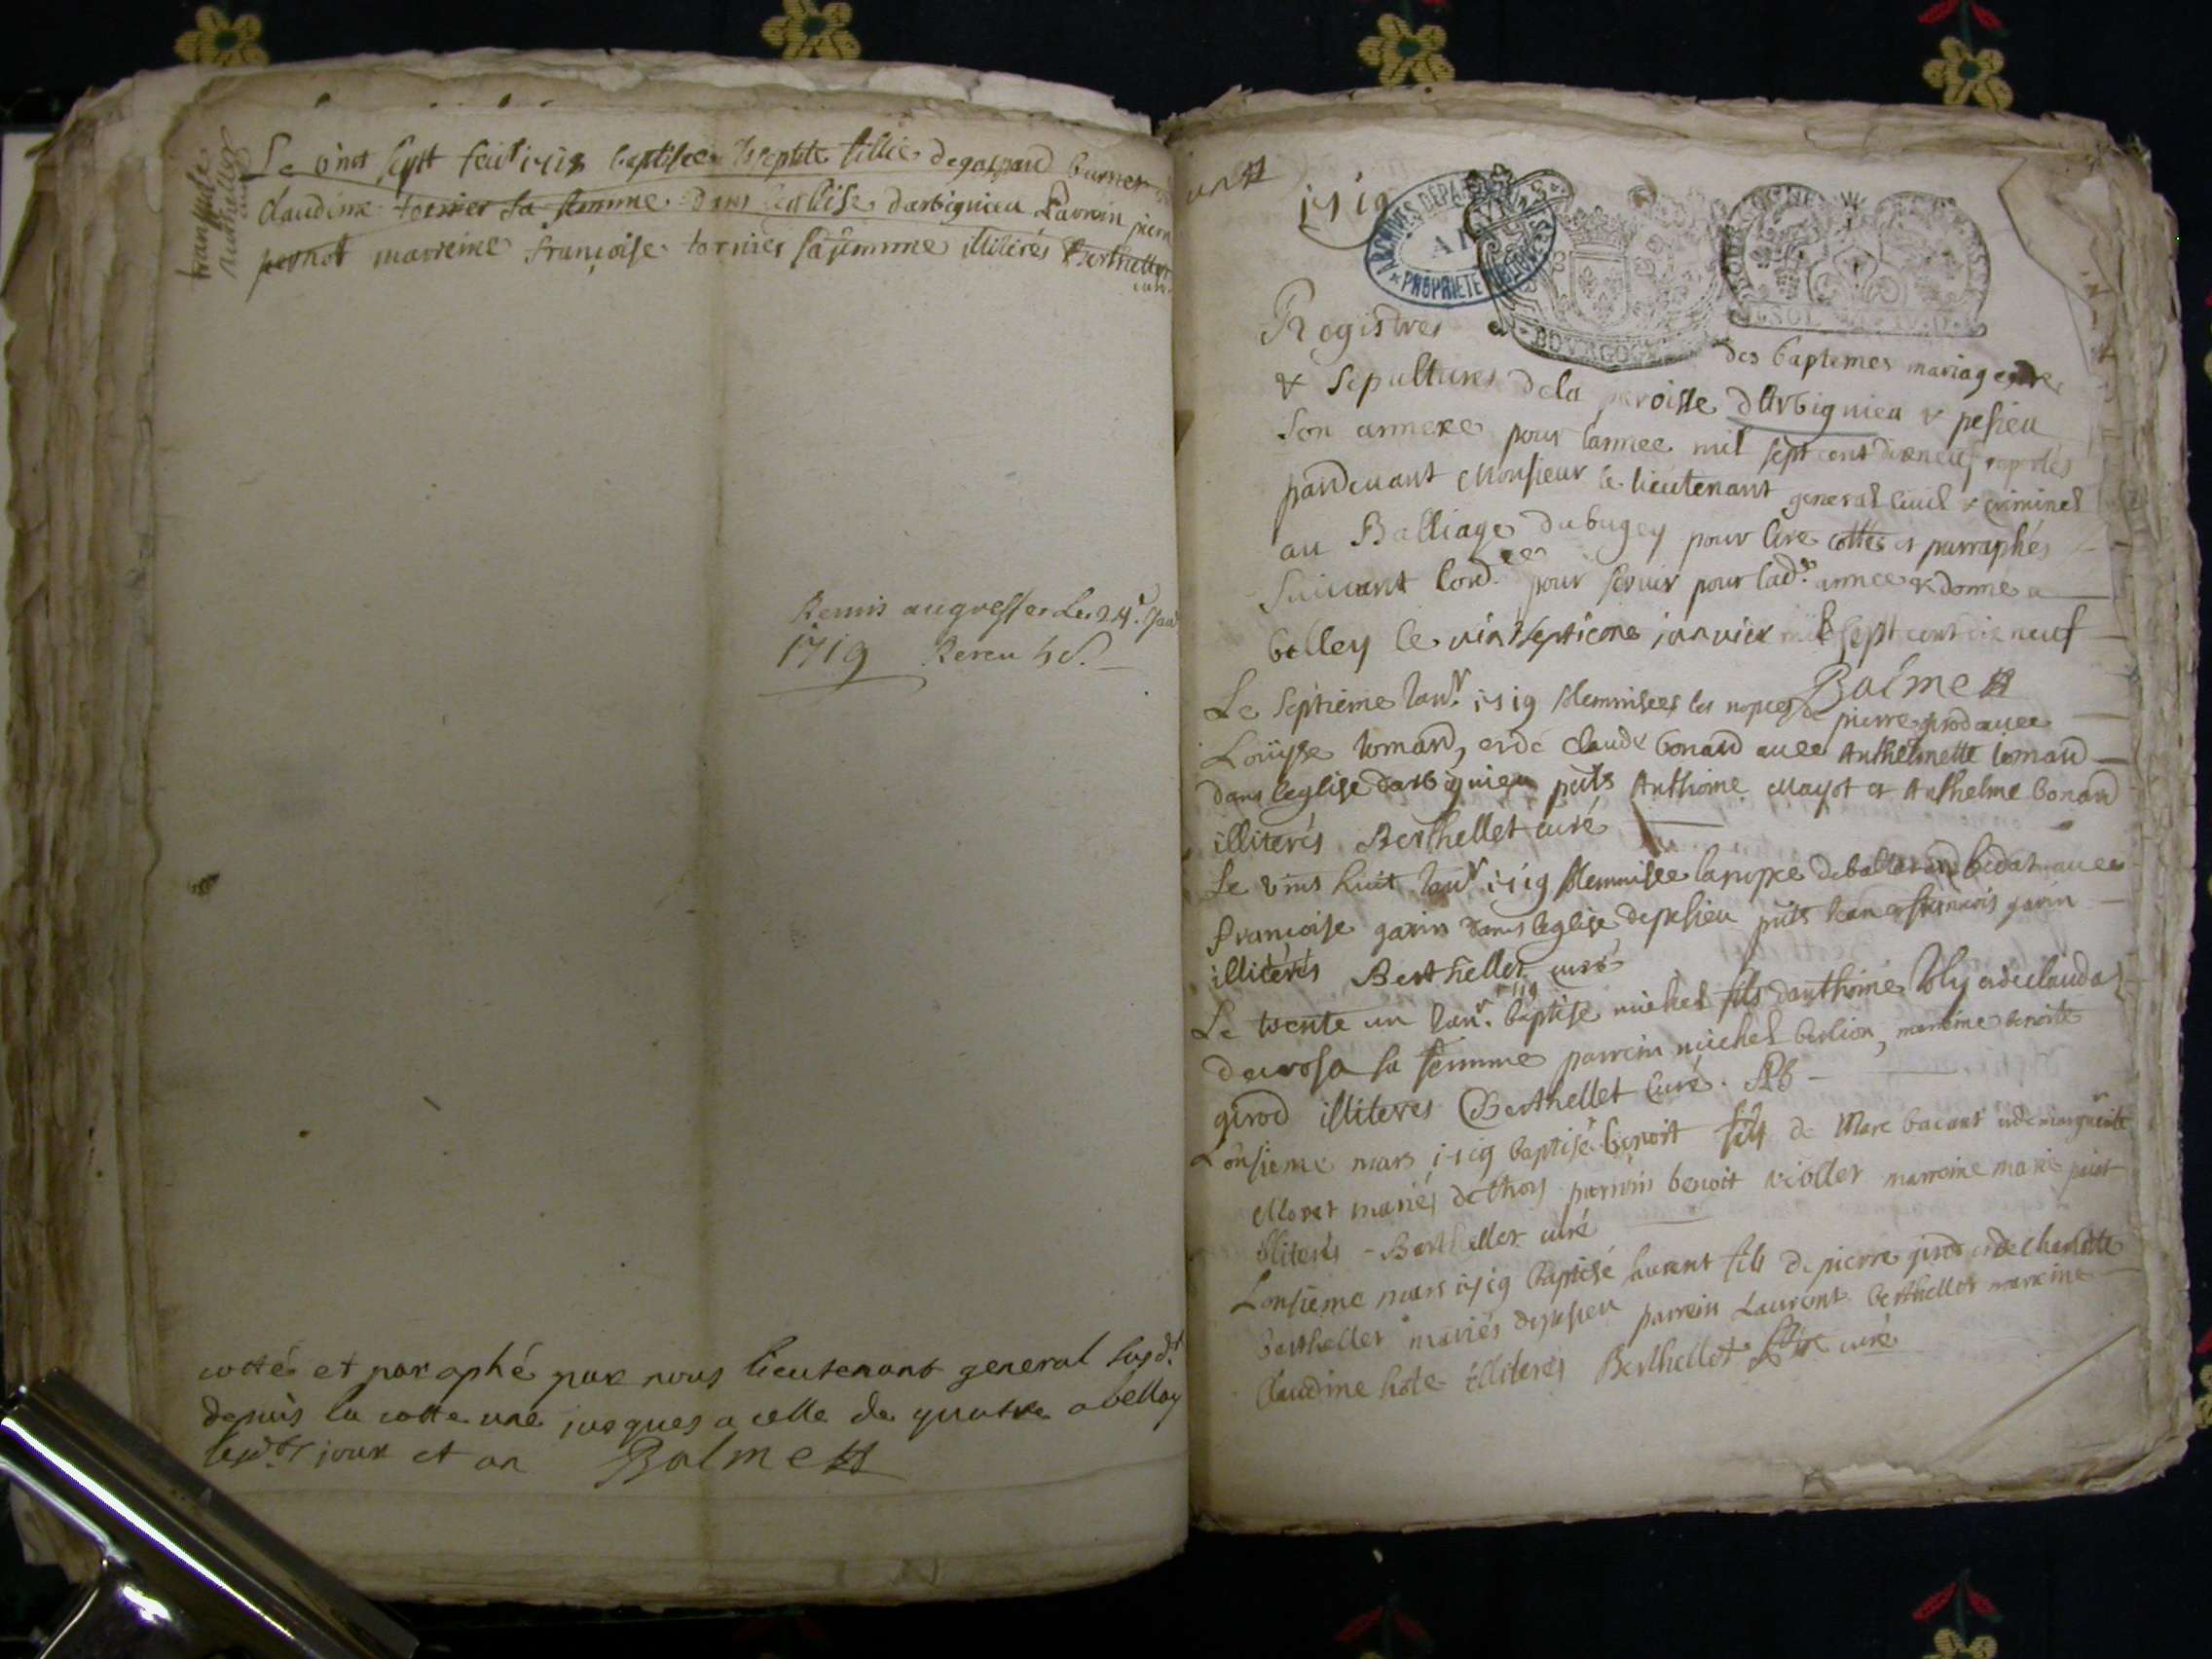 transſude
Berthellet
curé
Le vint sept feuʳ 1718 baptisée Josephte fillie de gaspard burner
claudine tornier sa femme dans leglise darbignieu Parrein pierre
pernot marreine françoise tornier sa femme illiterés Berthellet
curé
Remis au greffe Le 24ᵉ Janʳ
1719 Receu 4 s.
cotté et paraphé par nous lieutenant general susdᵗ
depuis la cotte une jusques a celle de quatre a belley
lesdᵗˢ jour et an Balme
une
1719
ARCHIVES DEPARTEMENTALES
AIN
PROPRIETE PUBLIQUE
BOURGOGNE
Registres des baptemes mariages
& sepultures dela paroisse dArbignieu & peſieu
son annexe pour lannee mil sept cent dixneuf
pardeuant Monsieur le lieutenant general ciuil & criminel
au Balliage du bugey pour être cottés et parraphés
suiuant lordᶜᵉ pour seruir pour ladᵗᵉ année & donné a
belley le vint septieme januier mil sept cent dix neuf
Balme
Le septieme Janʳ. 1719 solemnisées les nopces de pierre girod auec
Louyse tomand, et de claude bonard auec Anthelmette tomand
dans leglise darbignieu pnts Anthoine Mayot et Anthelme bonard
illiterés Berthellet curé
Le vint huit Janʳ 1719 solemnisée la nopce de baltazard bidat auec
françoise garin dans leglise de peſieu pnts Jean et françois garin
illiterés Berthellet curé
Le trente un Janʳ. 1719 baptisé michel fils danthoine Joly et de clauda
decrosa sa femme parrein michel berlion, marreine benoite
girod illiteres Berthellet Curé.
Lonsieme mars 1719 baptisé benoit fils de Marc bacant et de marguerite
Moret mariés de thoy parrein benoit viollet marreine marie
illiterés - Berthellet curé
Lonsieme mars 1719 baptisé laurent fils de pierre girod et de charlotte
berthellet mariés de peſieu parrein Laurent berthellet marreine
Claudine hote illiterés Berthellet curé